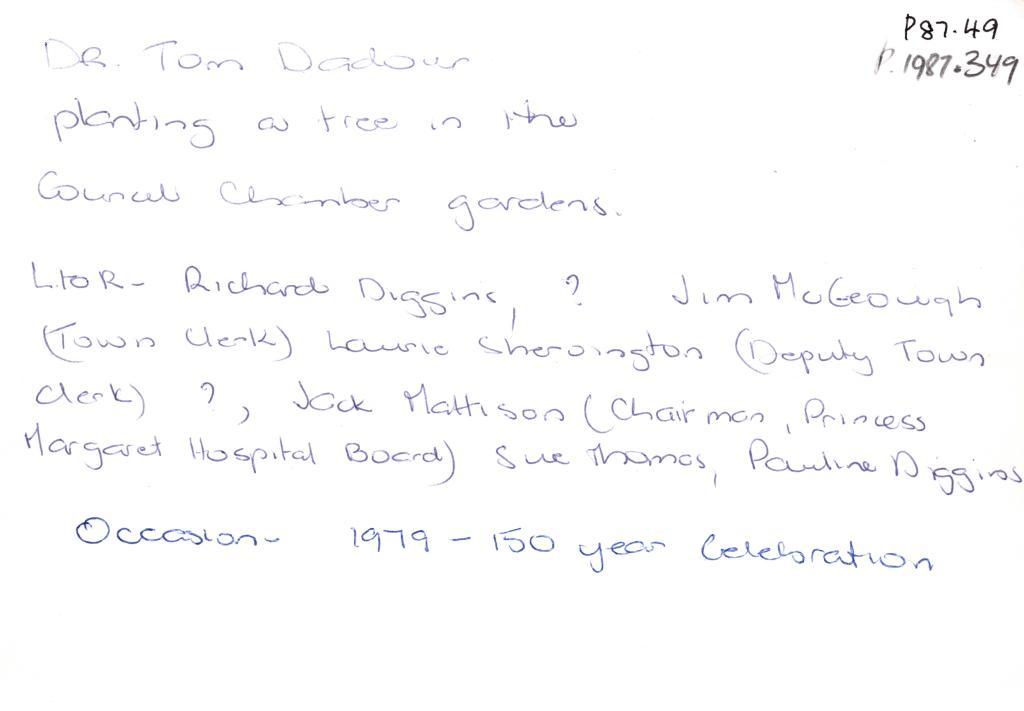 P87.49
P.1987.349
DR. Tom Dadour
planting a tree in the
Council Chamber gardens.
L to R - Richard Diggins, ? Jim McGeough
(Town Clerk) Laurie Shervington (Deputy Town
Clerk) ?, Jack Mattison (Chairman, Princess
Margaret Hospital Board) Sue Thomas, Pauline Diggins
Occasion - 1979 - 150 year Celebration